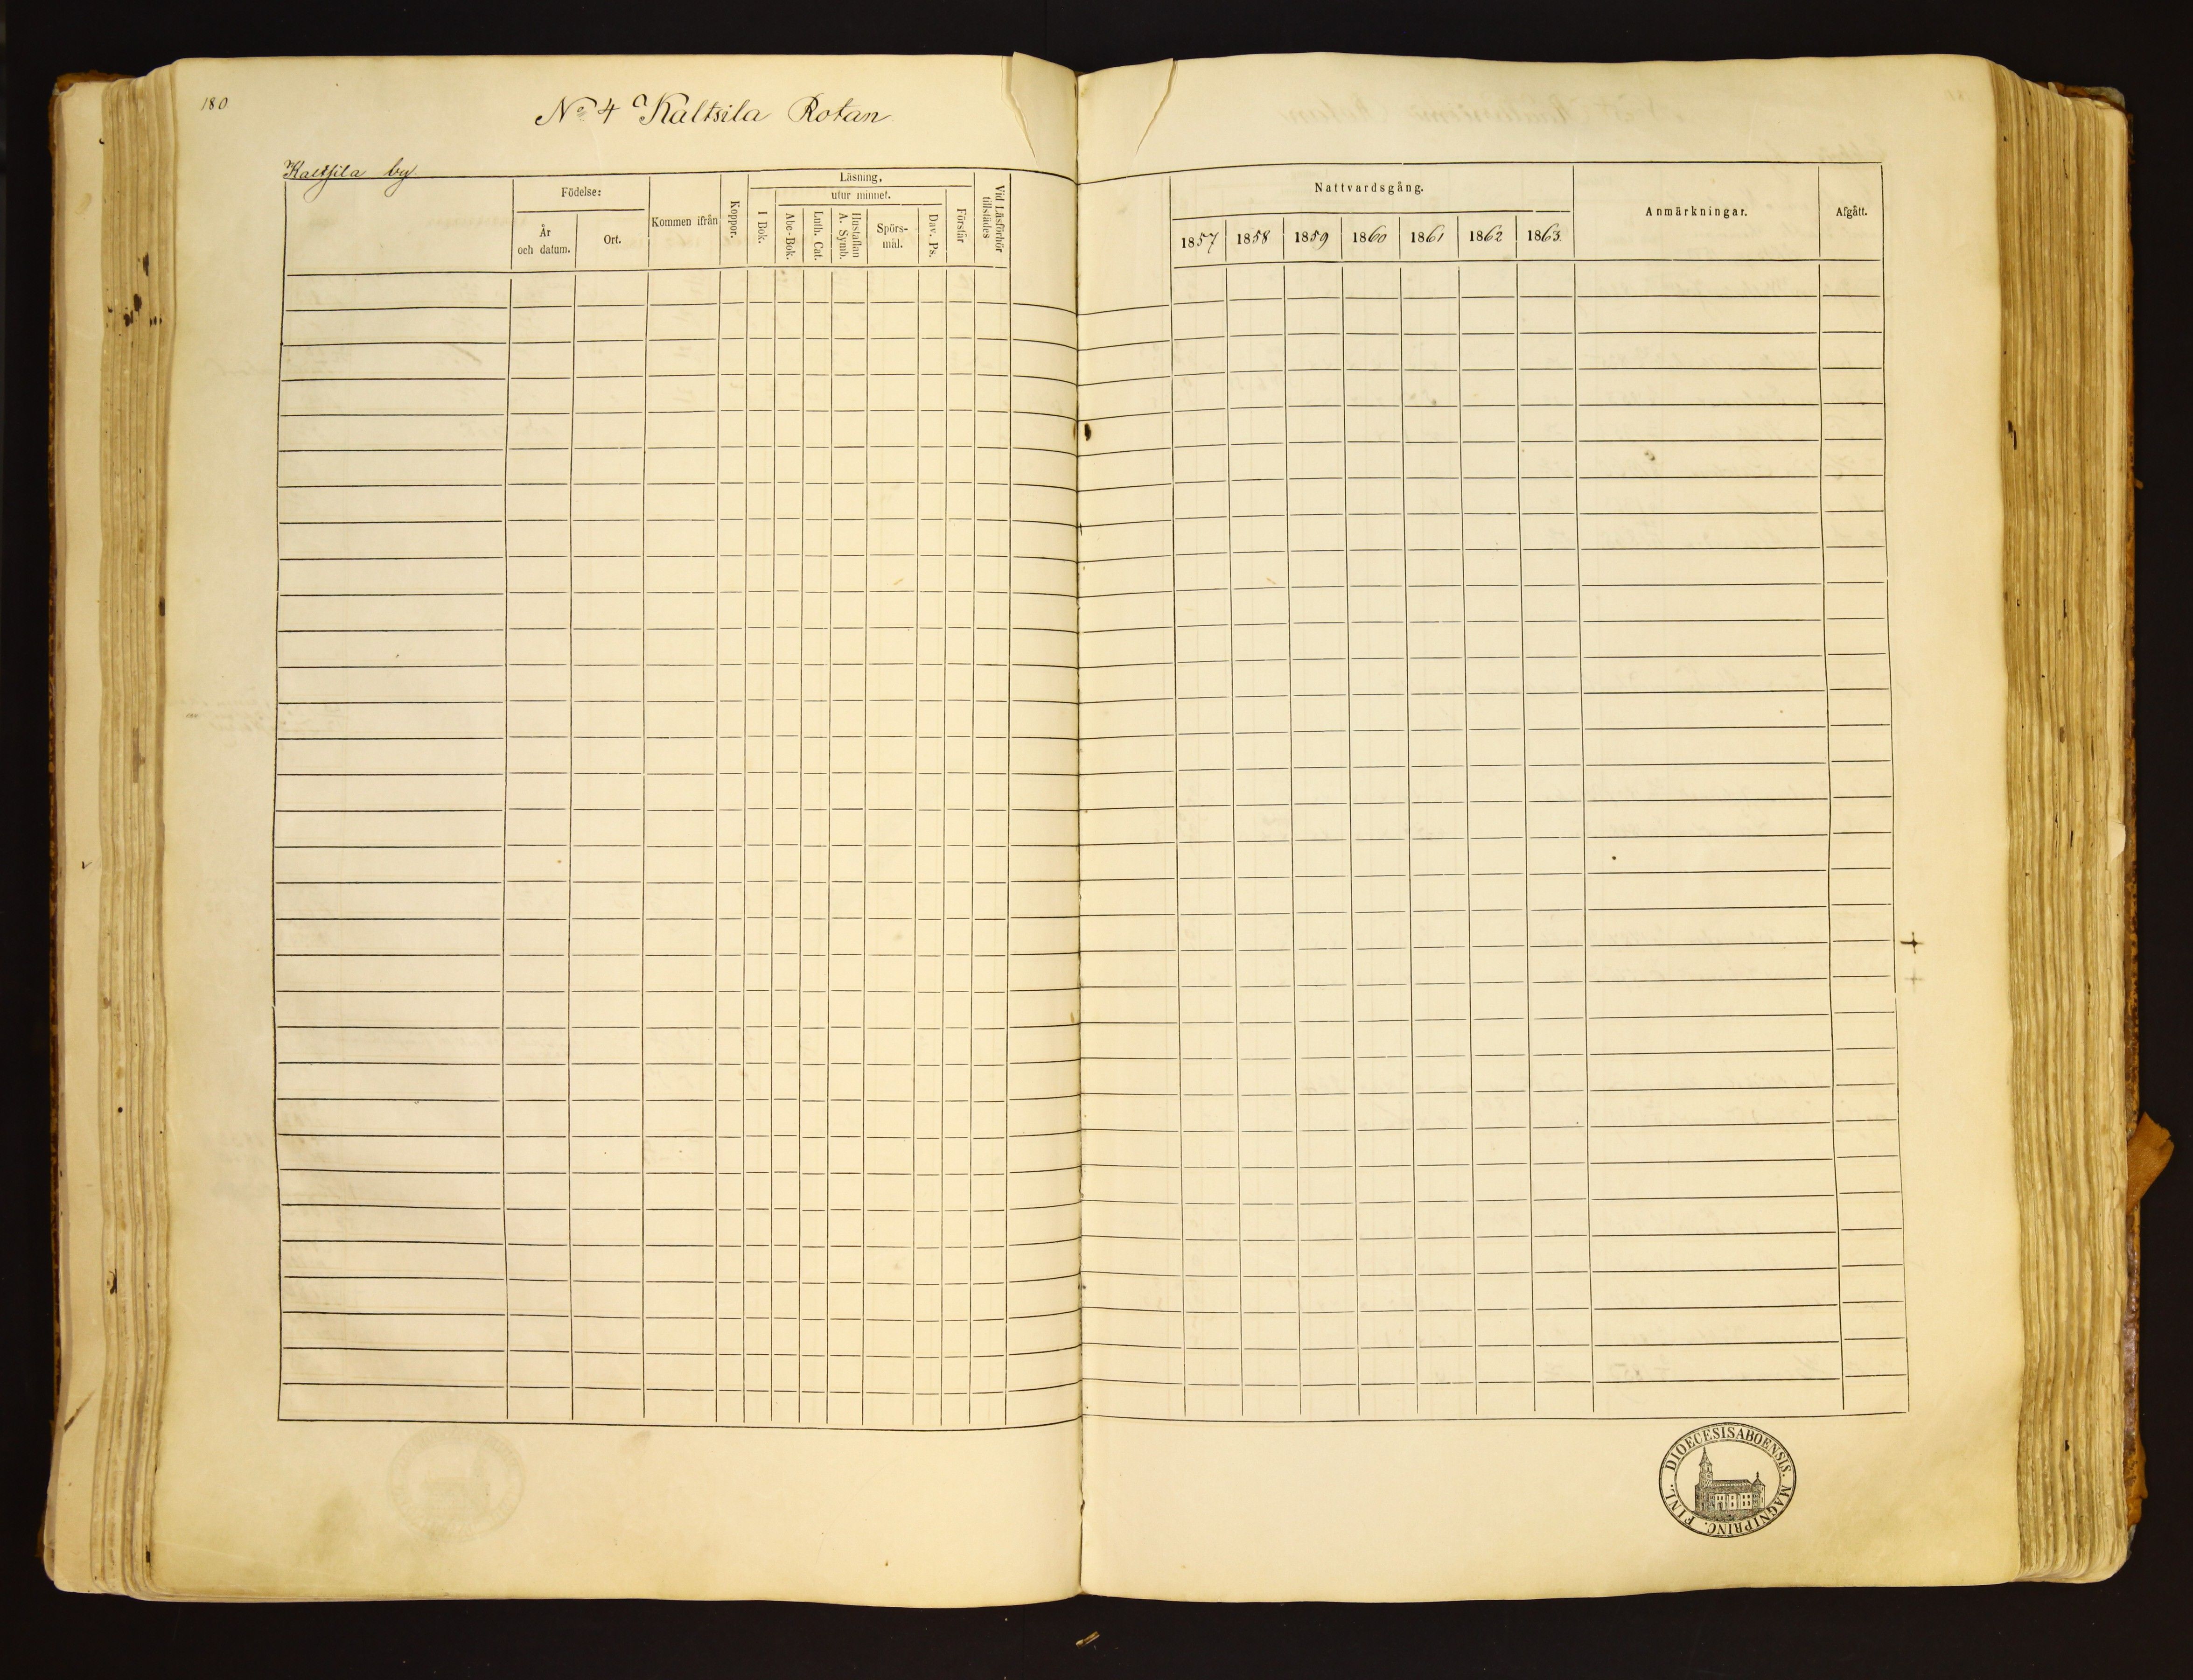 180
No 4 Kaltsila Rotan
Kaltsila by
Födelse:
År och datum.
Ort.
Kommen ifrån
Koppor.
Läsning,
utur minnet.
I Bok.
Abc-Bok.
Luth. Cat.
Hustaflan A. Symb.
Spörs-
mål.
Dav. Ps.
Förstår
Vid Läsförhör
tillstädes
Nattvardsgång.
1857 1858 1859 1860 1861 1862 1863.
Anmärkningar.
Afgått.
DIOECESIS ABOENSIS. MAGNI PRINC. FINL.